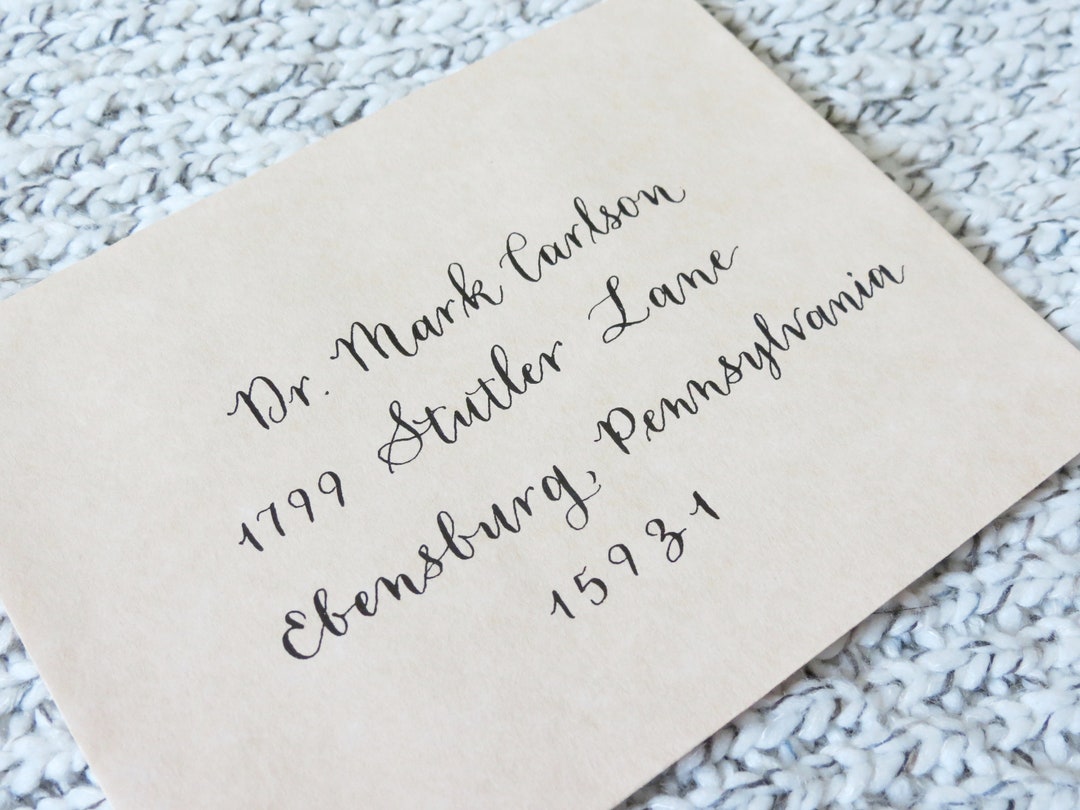 Dr. Mark Carlson
1799 Stutler Lane
Ebensburg, Pennsylvania
15931